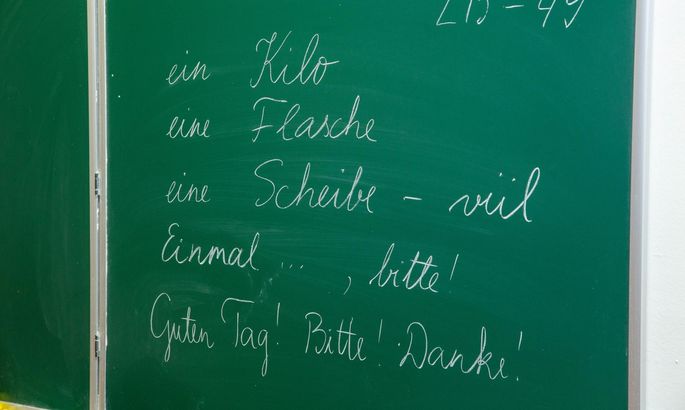 ein Kilo
eine Flasche
eine Scheibe – viil
Einmal ... , bitte!
Guten Tag! Bitte! Danke!